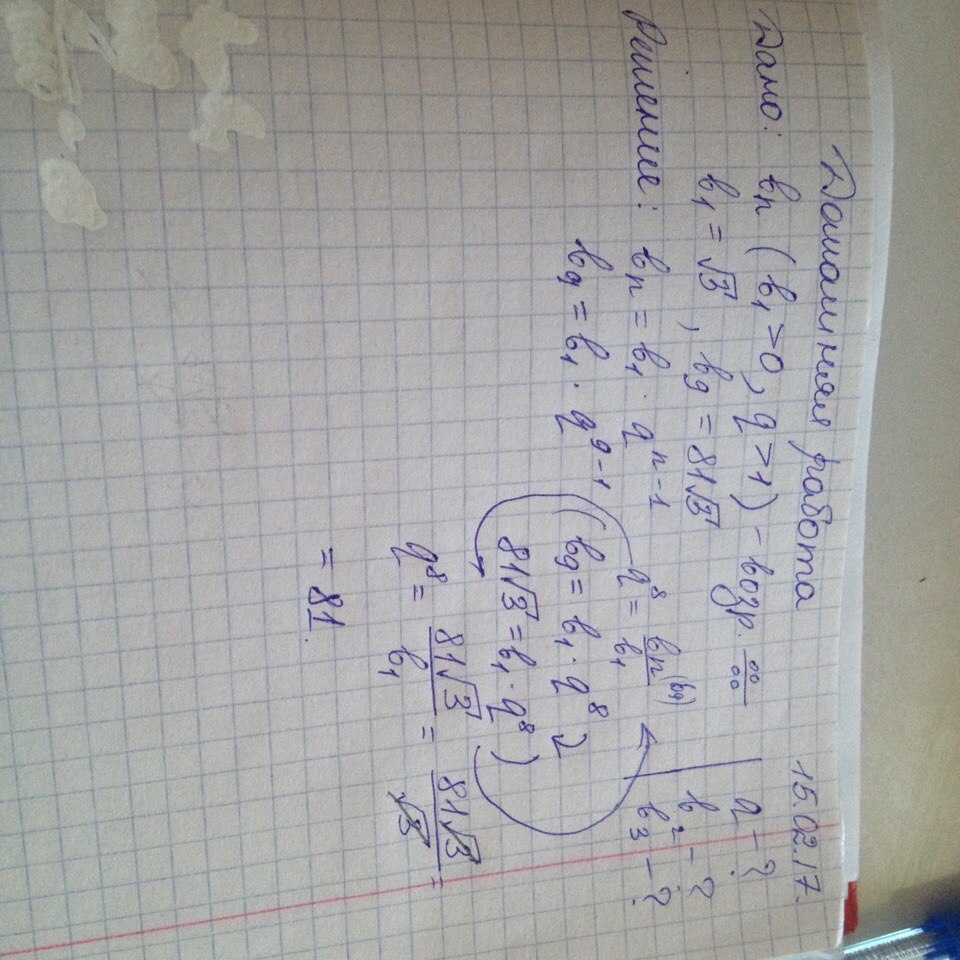 Домашняя работа 15.02.17.
Дано: bn (b₁>0, q>1) - возр. ∺
b₁ = √3, b₉ = 81√3
q - ?
b₂ - ?
b₃ - ?
Решение: bn = b₁ · qⁿ⁻¹
b₉ = b₁ · q⁹⁻¹
q⁸ = bn(b₉)/b₁
(b₉ = b₁ · q⁸
81√3 = b₁ · q⁸)
q⁸ = 81√3/b₁ = 81√3/√3 =
= 81